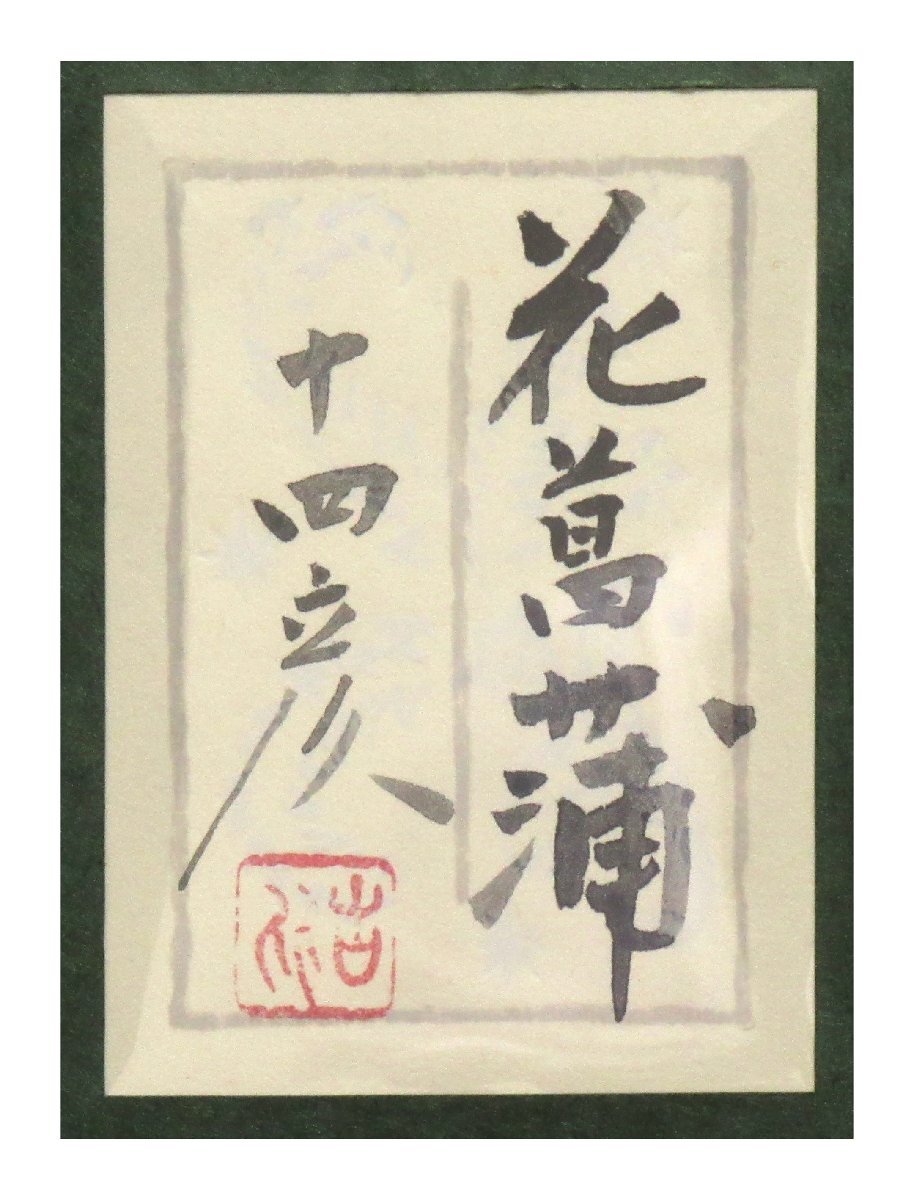 花菖蒲
十四彦